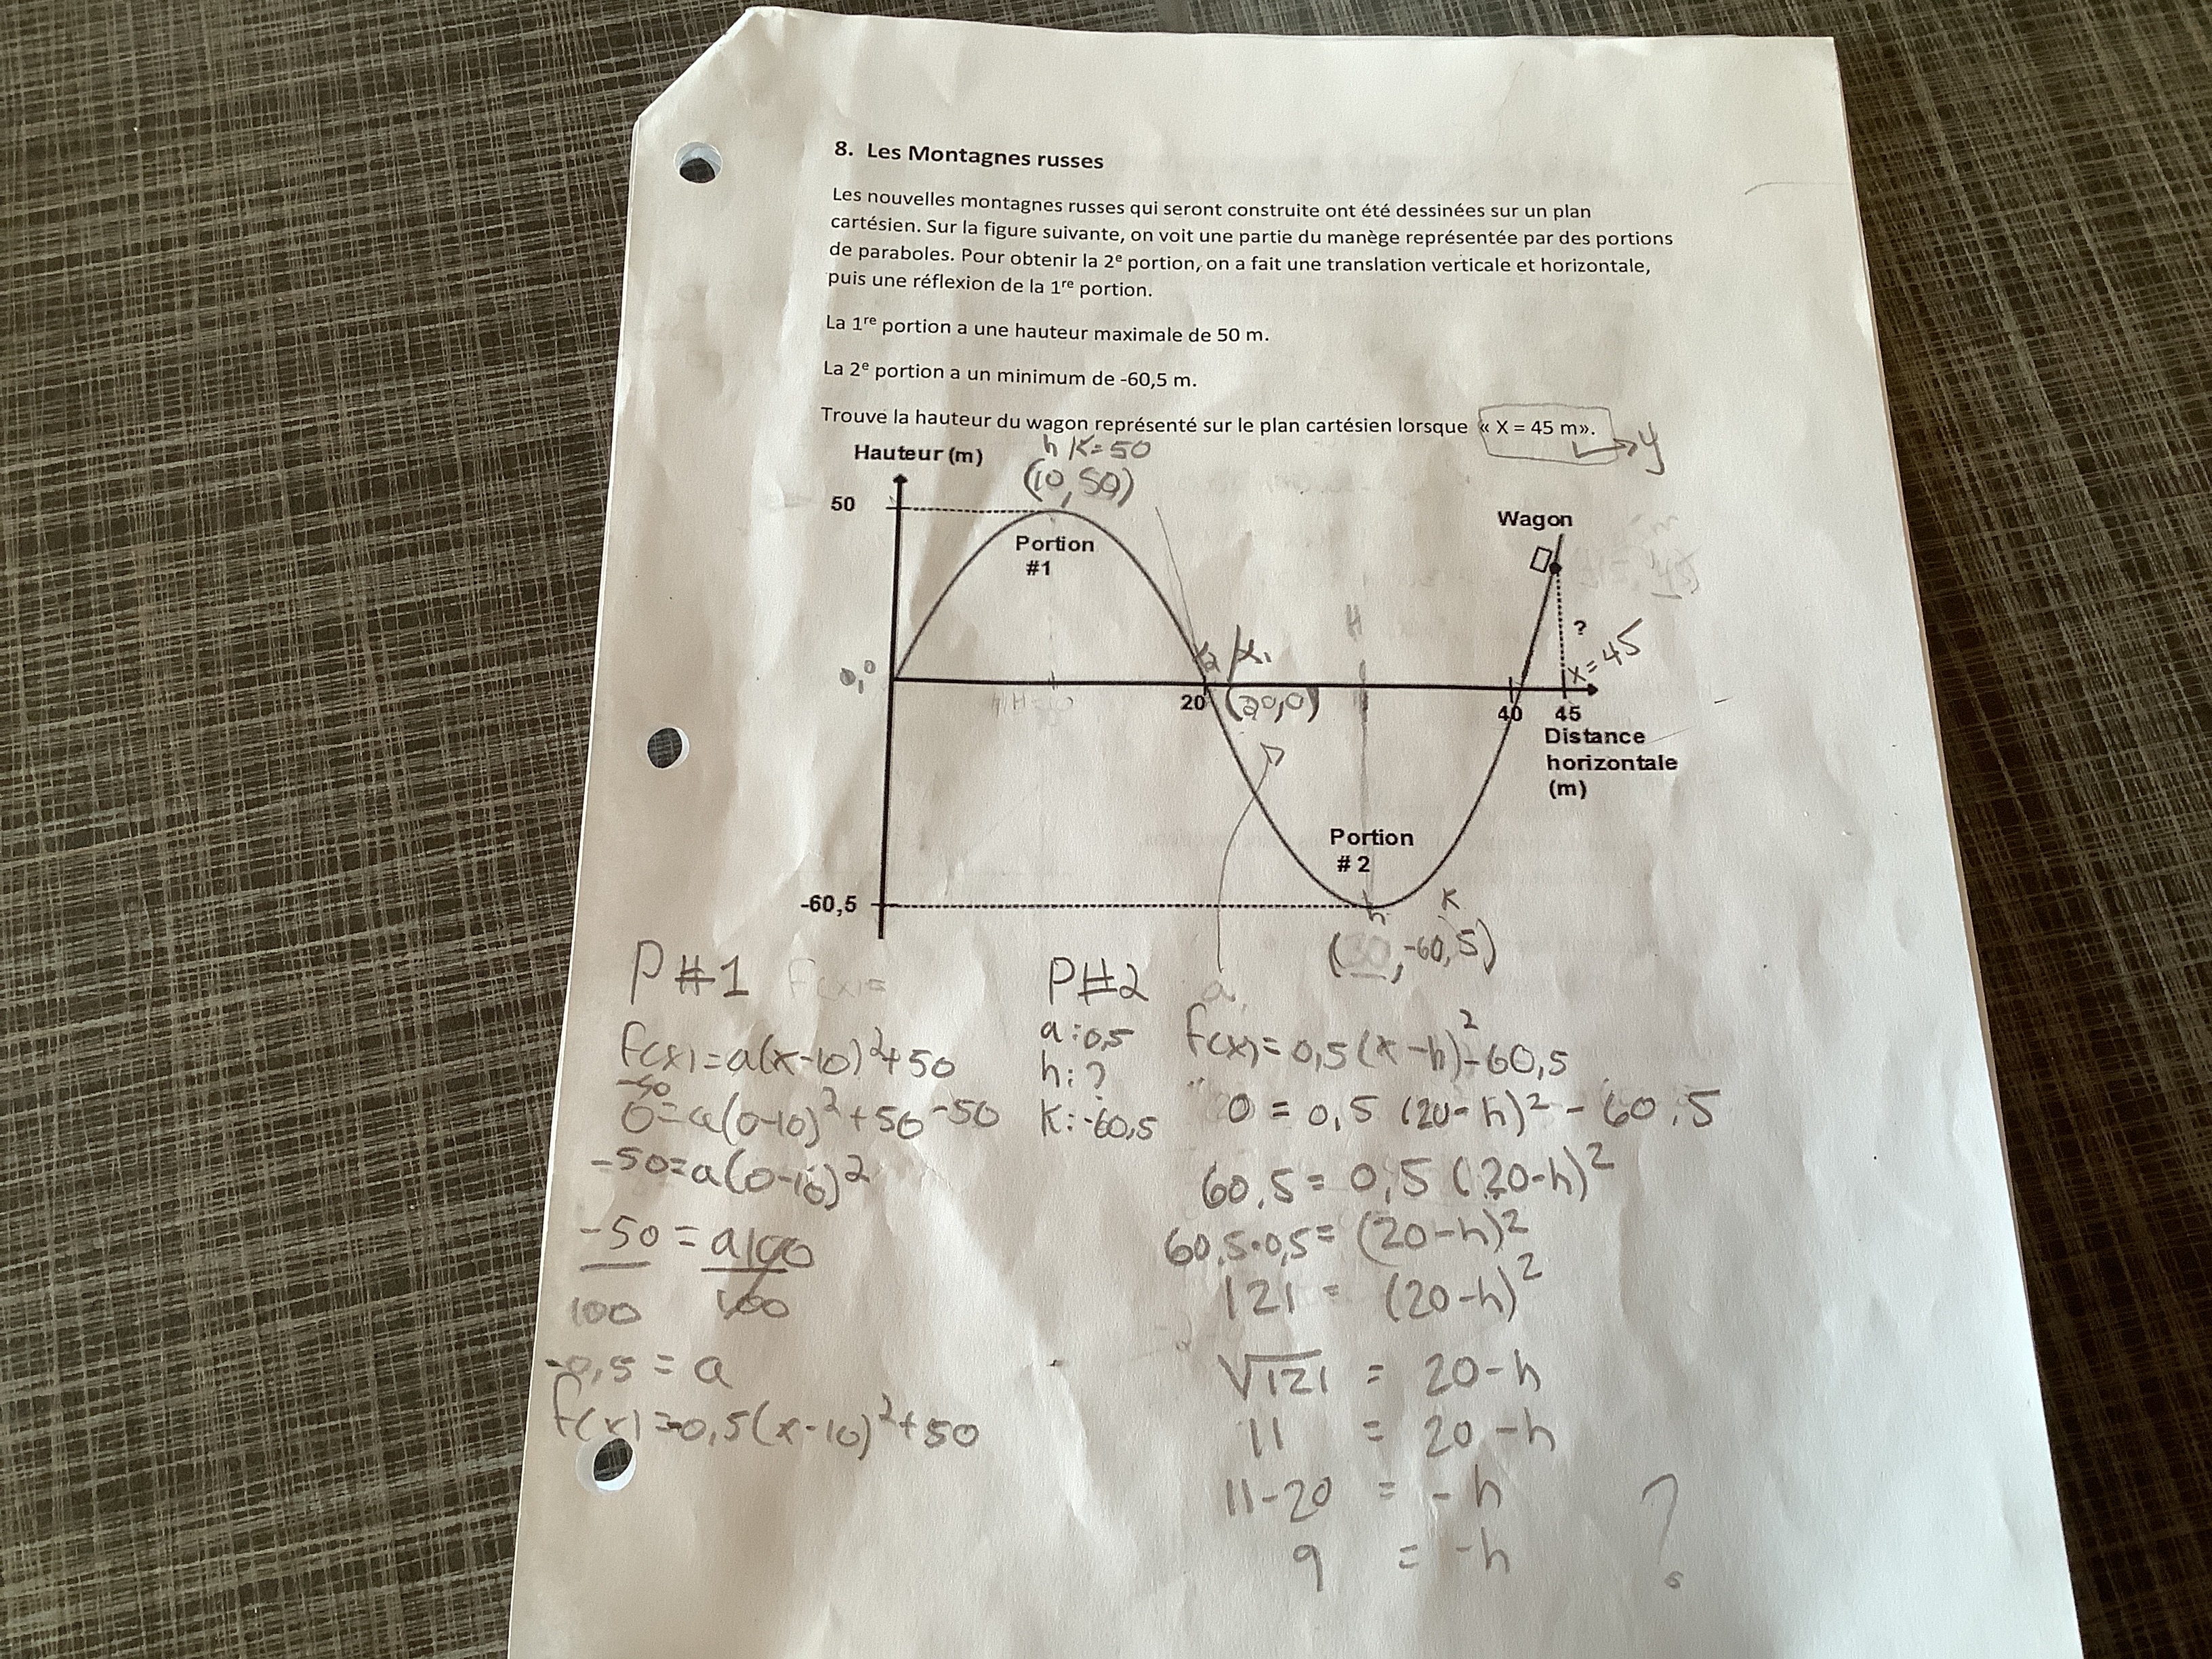 8. Les Montagnes russes
Les nouvelles montagnes russes qui seront construite ont été dessinées sur un plan
cartésien. Sur la figure suivante, on voit une partie du manège représentée par des portions
de paraboles. Pour obtenir la 2e portion, on a fait une translation verticale et horizontale,
puis une réflexion de la 1re portion.
La 1re portion a une hauteur maximale de 50 m.
La 2e portion a un minimum de -60,5 m.
Trouve la hauteur du wagon représenté sur le plan cartésien lorsque « X = 45 m».
y
h K=50
Hauteur (m)
(10, 50)
50
Wagon
Portion
#1
?
x=45
x1
0,0
20
(20,0)
40
45
Distance
horizontale
(m)
Portion
# 2
-60,5
h
K
(30, -60,5)
P#1
f(x)=
f(x)=a(x-10)²+50
-50
0=a(0-10)²+50-50
-50=a(0-10)²
-50 = a100
100 100
-0,5 = a
f(x)=-0,5(x-10)²+50
P#2
a
a:0,5
h:?
K:-60,5
f(x)=0,5(x-h)²-60,5
0 = 0,5 (20-h)² - 60,5
60,5 = 0,5 (20-h)²
60,5÷0,5= (20-h)²
121 = (20-h)²
√121 = 20-h
11 = 20-h
11-20 = -h
9 = -h
?